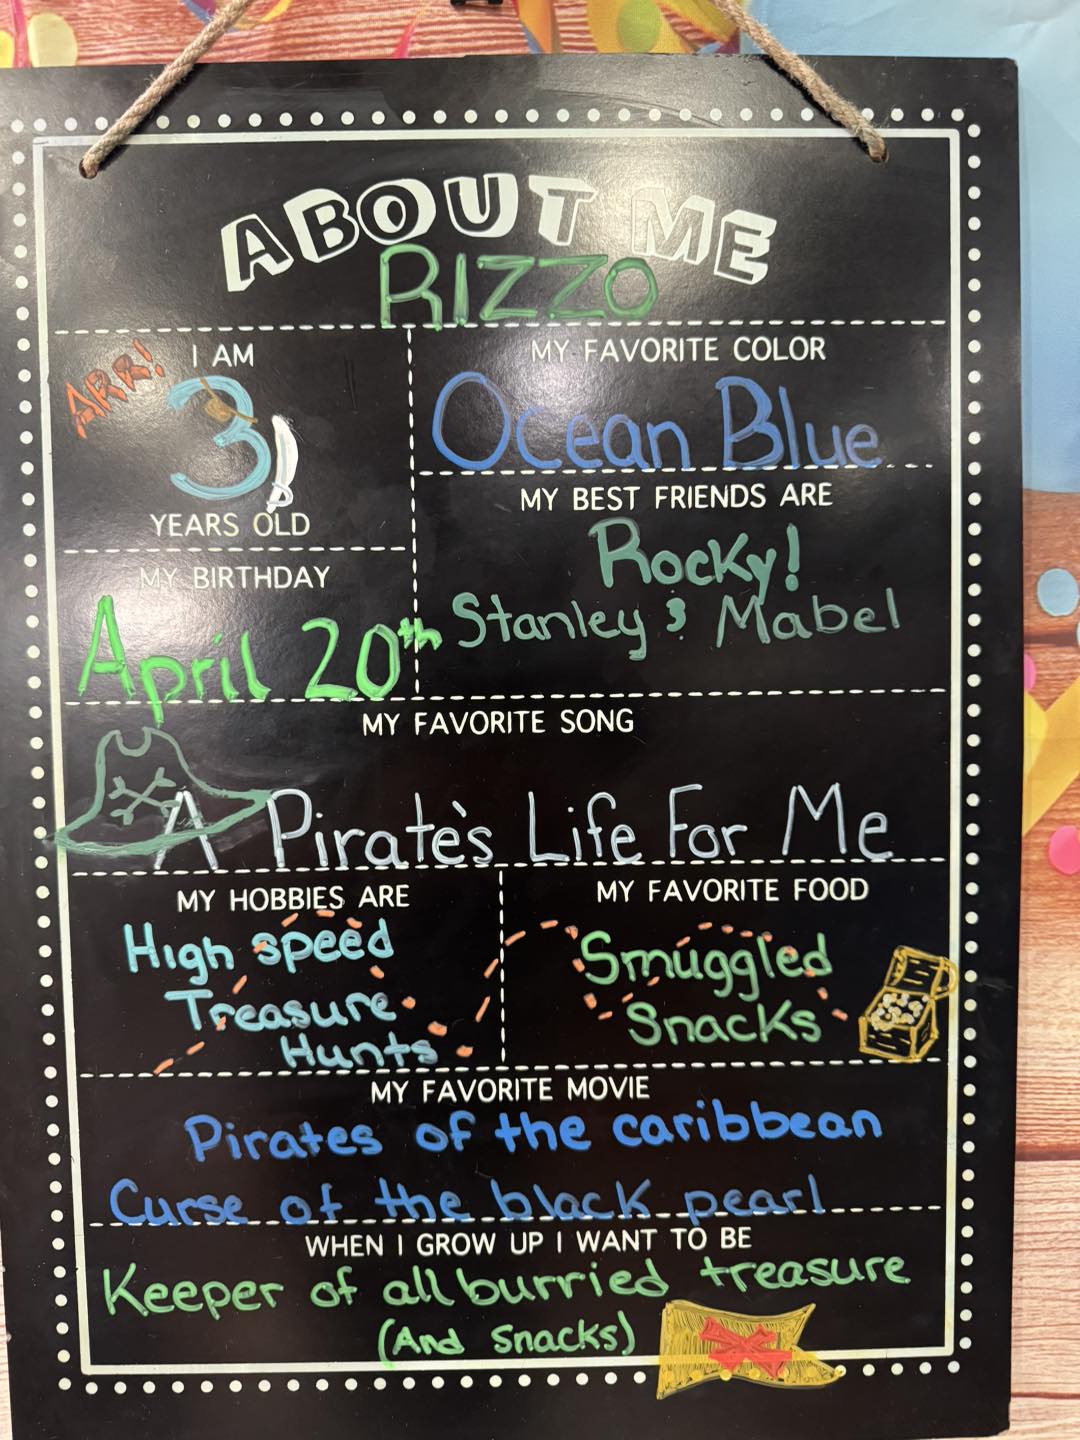 ABOUT ME
RIZZO
ARR!
I AM
3
YEARS OLD
MY BIRTHDAY
April 20th
MY FAVORITE COLOR
Ocean Blue
MY BEST FRIENDS ARE
Rocky!
Stanley & Mabel
MY FAVORITE SONG
A Pirate's Life For Me
MY HOBBIES ARE
High speed
Treasure
Hunts
MY FAVORITE FOOD
Smuggled
Snacks
MY FAVORITE MOVIE
Pirates of the caribbean
Curse of the black pearl
WHEN I GROW UP I WANT TO BE
Keeper of all burried treasure
(And snacks)